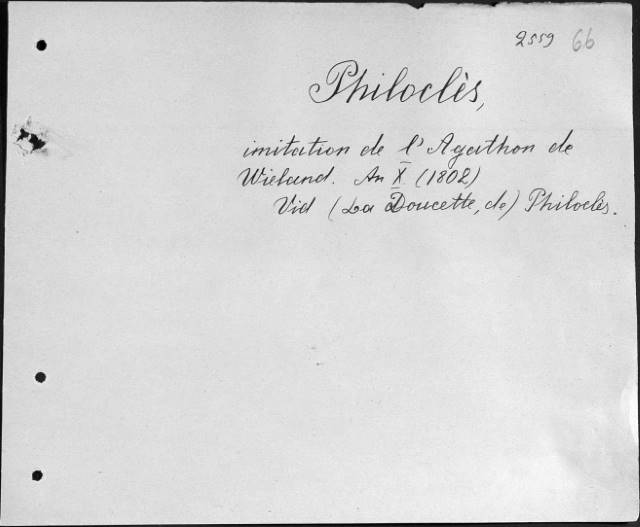 2559 66
Philoclès,
imitation de l'Agathon de
Wieland. An X (1802)
Vid (La Doucette, de) Philoclès.